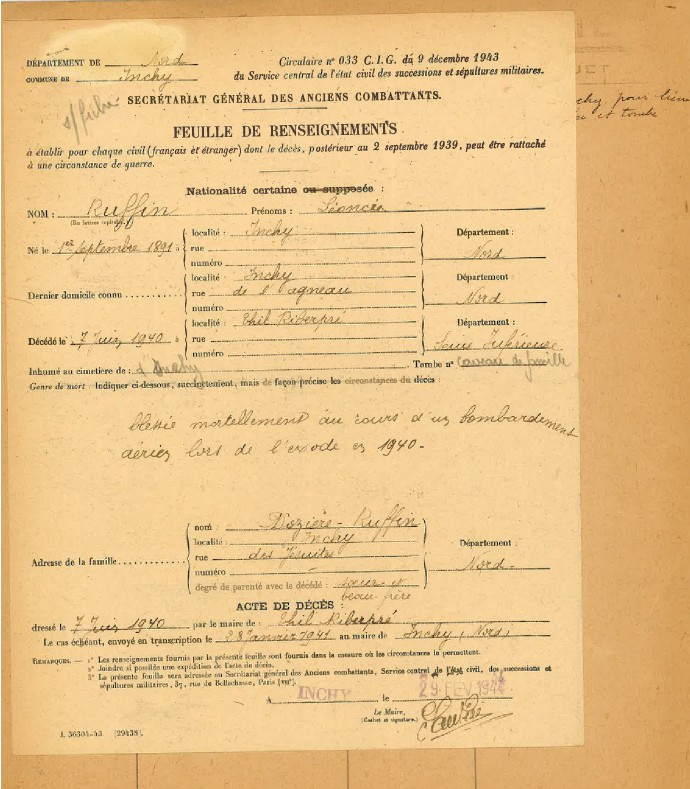 DÉPARTEMENT DE Nord
COMMUNE DE Inchy
Circulaire n° 033 C.I.G. du 9 décembre 1943
du Service central de l'état civil des successions et sépultures militaires.
s/fiche
SECRÉTARIAT GÉNÉRAL DES ANCIENS COMBATTANTS.
FEUILLE DE RENSEIGNEMENTS
à établir pour chaque civil (français et étranger) dont le décès, postérieur au 2 septembre 1939, peut être rattaché
à une circonstance de guerre.
Nationalité certaine ou supposée :
NOM : Ruffin Prénoms : Léonce
(En lettres capitales)
Né le 1er septembre 1891 à localité : Inchy Département :
rue
numéro Nord
Dernier domicile connu localité : Inchy Département
rue de l'agneau
numéro Nord
Décédé le 7 Juin 1940 à localité : Thil Riberpré Département :
rue
numéro Seine Inférieure
Inhumé au cimetière de : d'Inchy Tombe n° caveau de famille
Genre de mort : Indiquer ci-dessous, succinctement, mais de façon précise les circonstances du décès :
blessée mortellement au cours d'un bombardement
aérien lors de l'exode en 1940.
Adresse de la famille nom : Dozière - Ruffin
localité : Inchy Département :
rue des Jésuites
numéro Nord.
degré de parenté avec le décédé : soeur et
beau frère
ACTE DE DÉCÈS :
dressé le 7 Juin 1940 par le maire de : Thil Riberpré
Le cas échéant, envoyé en transcription le 28 Janvier 1941 au maire de Inchy (Nord)
REMARQUES. — 1° Les renseignements fournis par la présente feuille sont fournis dans la mesure où les circonstances le permettent.
2° Joindre si possible une expédition de l'acte de décès.
3° La présente feuille sera adressée au Secrétariat général des Anciens combattants, Service central de l'état civil, des successions et
sépultures militaires, 37, rue de Bellechasse, Paris (VII°).
A INCHY le 29 FEV 1944
Le Maire,
(Cachet et signature.)
J. 36304-43 (29438).
Inchy pour lieu
et tombe